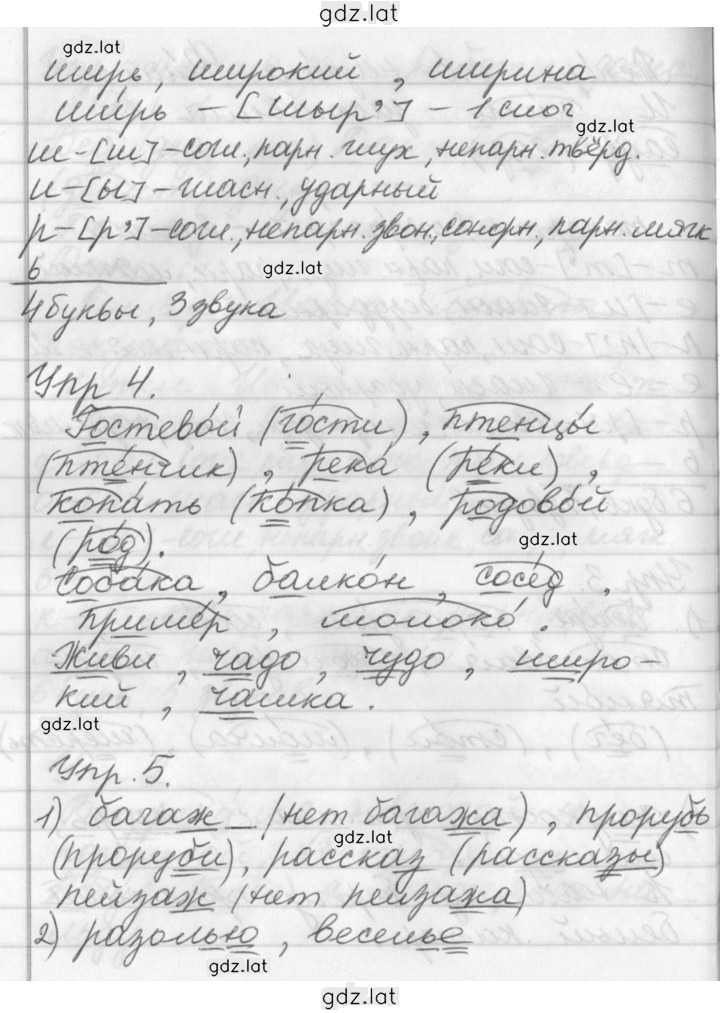 gdz.lat
gdz.lat
ширь, широкий, ширина
ши́рь – [шыр'] – 1 слог
gdz.lat
ш-[ш]-согл., парн. глух, непарн. твёрд.
и-[ы]-гласн., ударный
р-[р']-согл., непарн. звон., сонорн., парн. мягк
ь
gdz.lat
4 буквы, 3 звука
Упр 4.
Гостево́й (го́сти), птенцы́
(пте́нчик), река́ (ре́ки),
копа́ть (ко́пка), родово́й
(ро́д).
gdz.lat
соба́ка, балко́н, сосе́д,
приме́р, молоко́.
Живи, чадо, чудо, широ-
кий, чашка.
gdz.lat
Упр. 5.
1) багаж – (нет багажа), прорубь
gdz.lat
(проруби), рассказ (рассказы)
пейзаж (нет пейзажа)
2) разолью, веселье
gdz.lat
gdz.lat